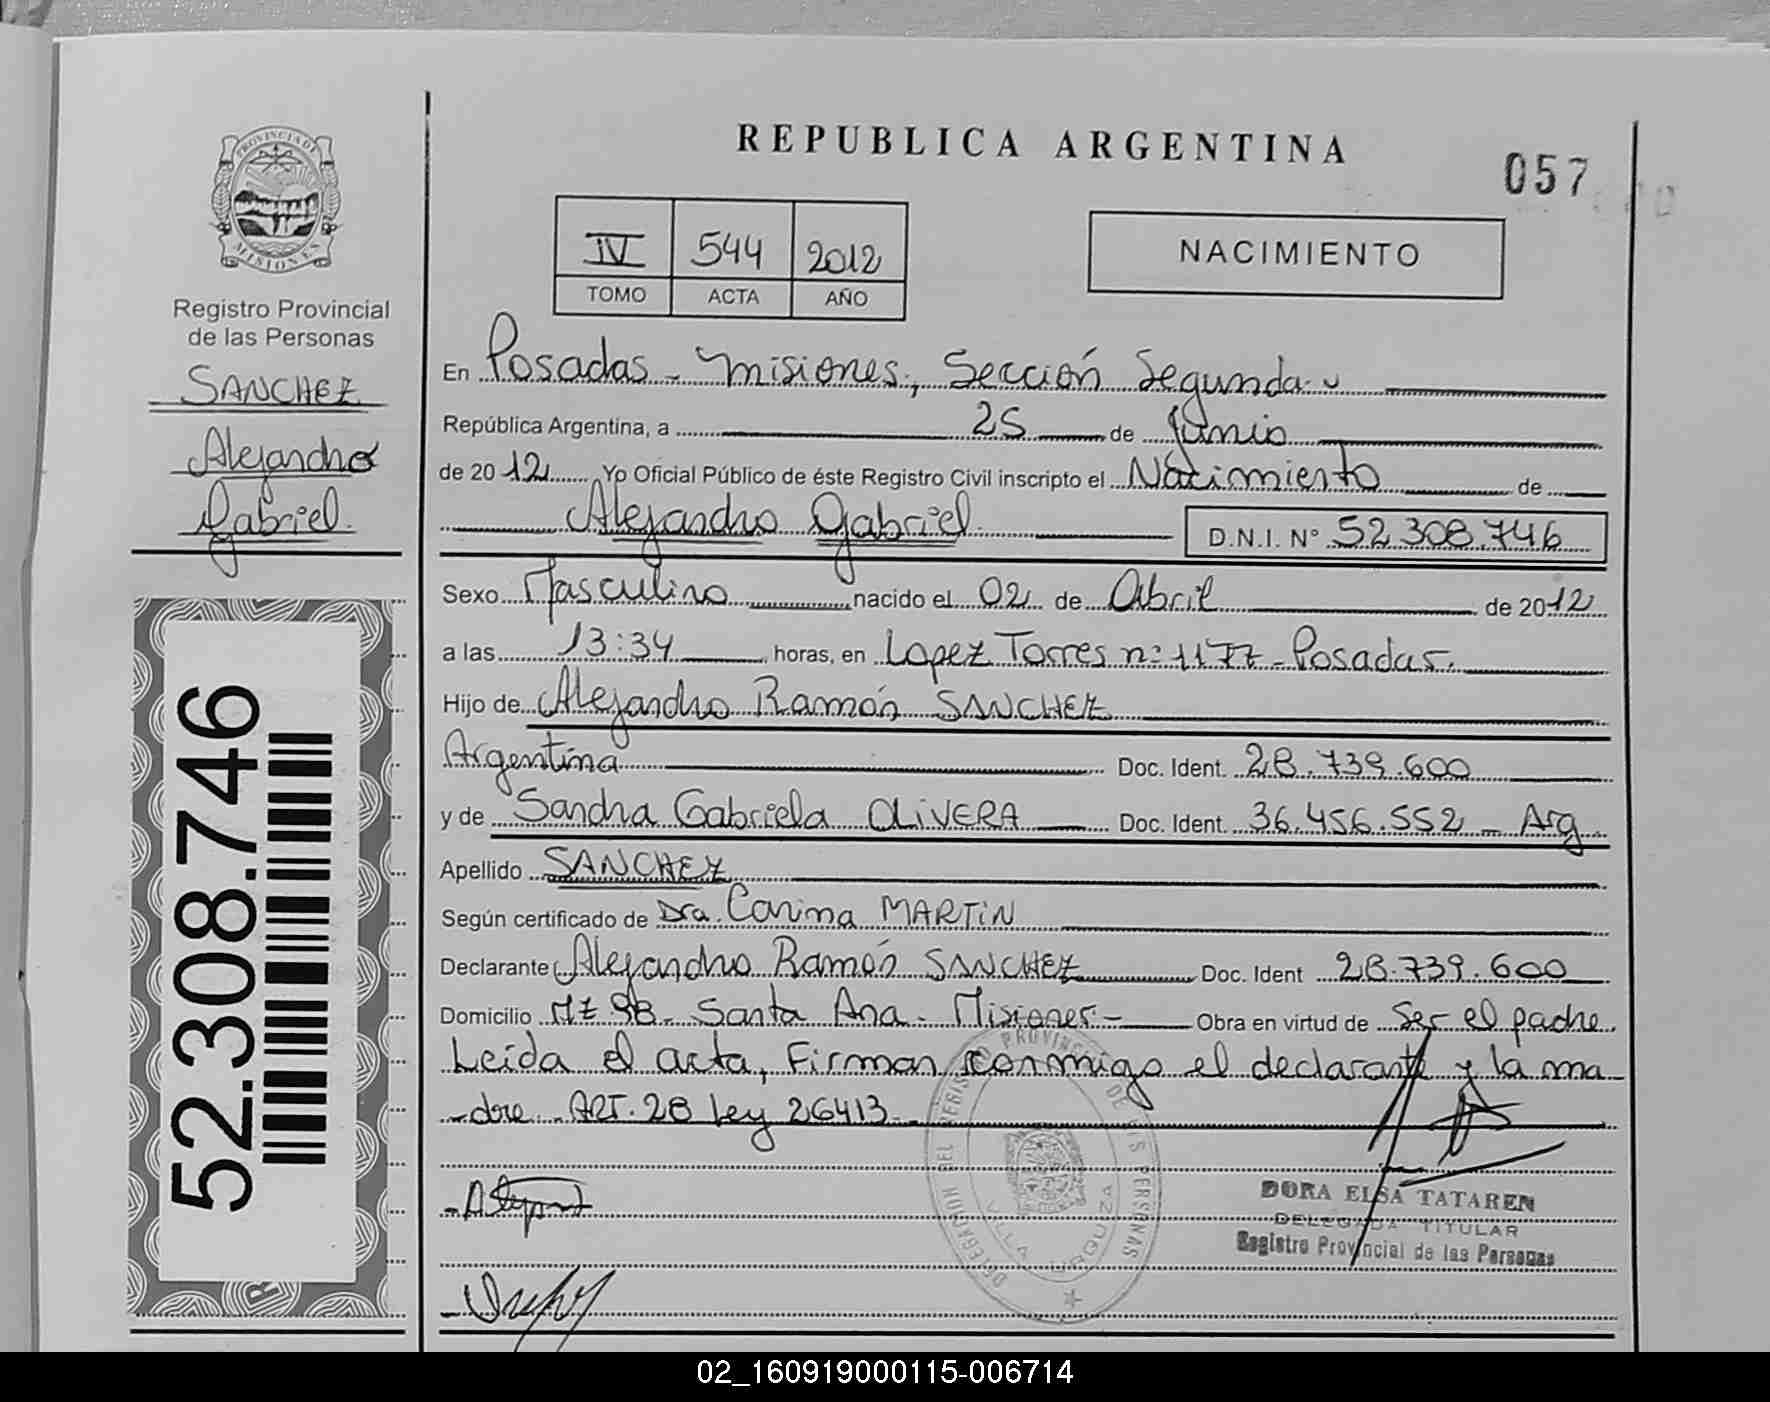 REPUBLICA ARGENTINA
057
PROVINCIA DE
MISIONES
Registro Provincial
de las Personas
SANCHEZ
Alejandro
Gabriel.
52.308.746
IV 544 2012
TOMO ACTA AÑO
NACIMIENTO
En Posadas - Misiones, Sección Segunda
República Argentina, a 25 de Junio
de 2012 Yo Oficial Público de éste Registro Civil inscripto el Nacimiento de
Alejandro Gabriel. D.N.I. Nº 52.308.746
Sexo Masculino nacido el 02 de Abril de 2012
a las 13:34 horas, en Lopez Torres nº 1177 - Posadas.
Hijo de Alejandro Ramón SANCHEZ
Argentina Doc. Ident. 28.739.600
y de Sandra Gabriela OLIVERA Doc. Ident. 36.456.552 - Arg
Apellido SANCHEZ
Según certificado de Dra. Carina MARTIN
Declarante Alejandro Ramón SANCHEZ Doc. Ident 28.739.600
Domicilio Mz 9B. Santa Ana - Misiones - Obra en virtud de Ser el padre.
Leída el acta, Firman conmigo el declarante y la ma-
-dre. ART. 28 Ley 26413.
DELEGACION DEL REGISTRO PROVINCIAL DE LAS PERSONAS
VILLA URQUIZA
DORA ELSA TATAREN
DELEGADA TITULAR
Registro Provincial de las Personas
02_160919000115-006714